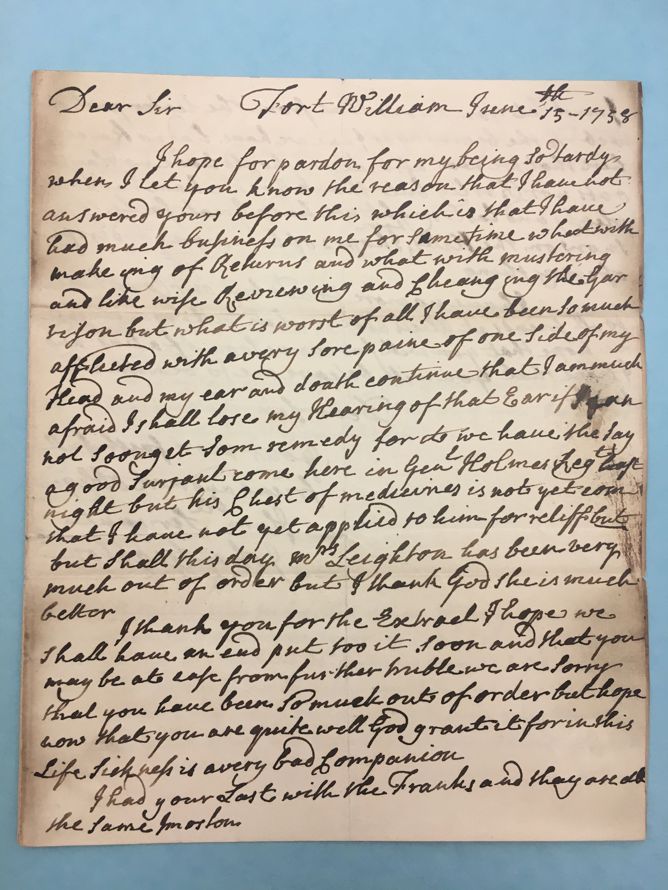 Dear Sir Fort William June 15th-1758
I hope for pardon for my being So tardy
when I let you know the reason that I have not
answered yours before this which is that I have
had much business on me for Same time what with
make ing of Returns and what with mustoring
and like wise Reviewing and Cheang ing the Gar
rison but what is worst of all I have been So much
afflicted with avery Sore paine of one Side of my
Head and my ear and doath continue that I am much
afraid I shall lose my Hearing of that Ear if I can
not Soon get Som remedy for it we have the Say
a good Surjant come here in Genl Holmes Regt last
night but his Chest of medicines is not yet com
that I have not yet applied to him for reliff but
but Shall this day mrs Leighton has been very
much out of order but I thank God She is much
better
I thank you for the Extract I hope we
Shall have an end put too it Soon and that you
may be ate ease from further truble we are Sorry
that you have been So much out of order but hope
now that you are quite well God grant it for in this
Life Sickness is avery bad Companion
I had your Last with the Franks and thay are all
the Same